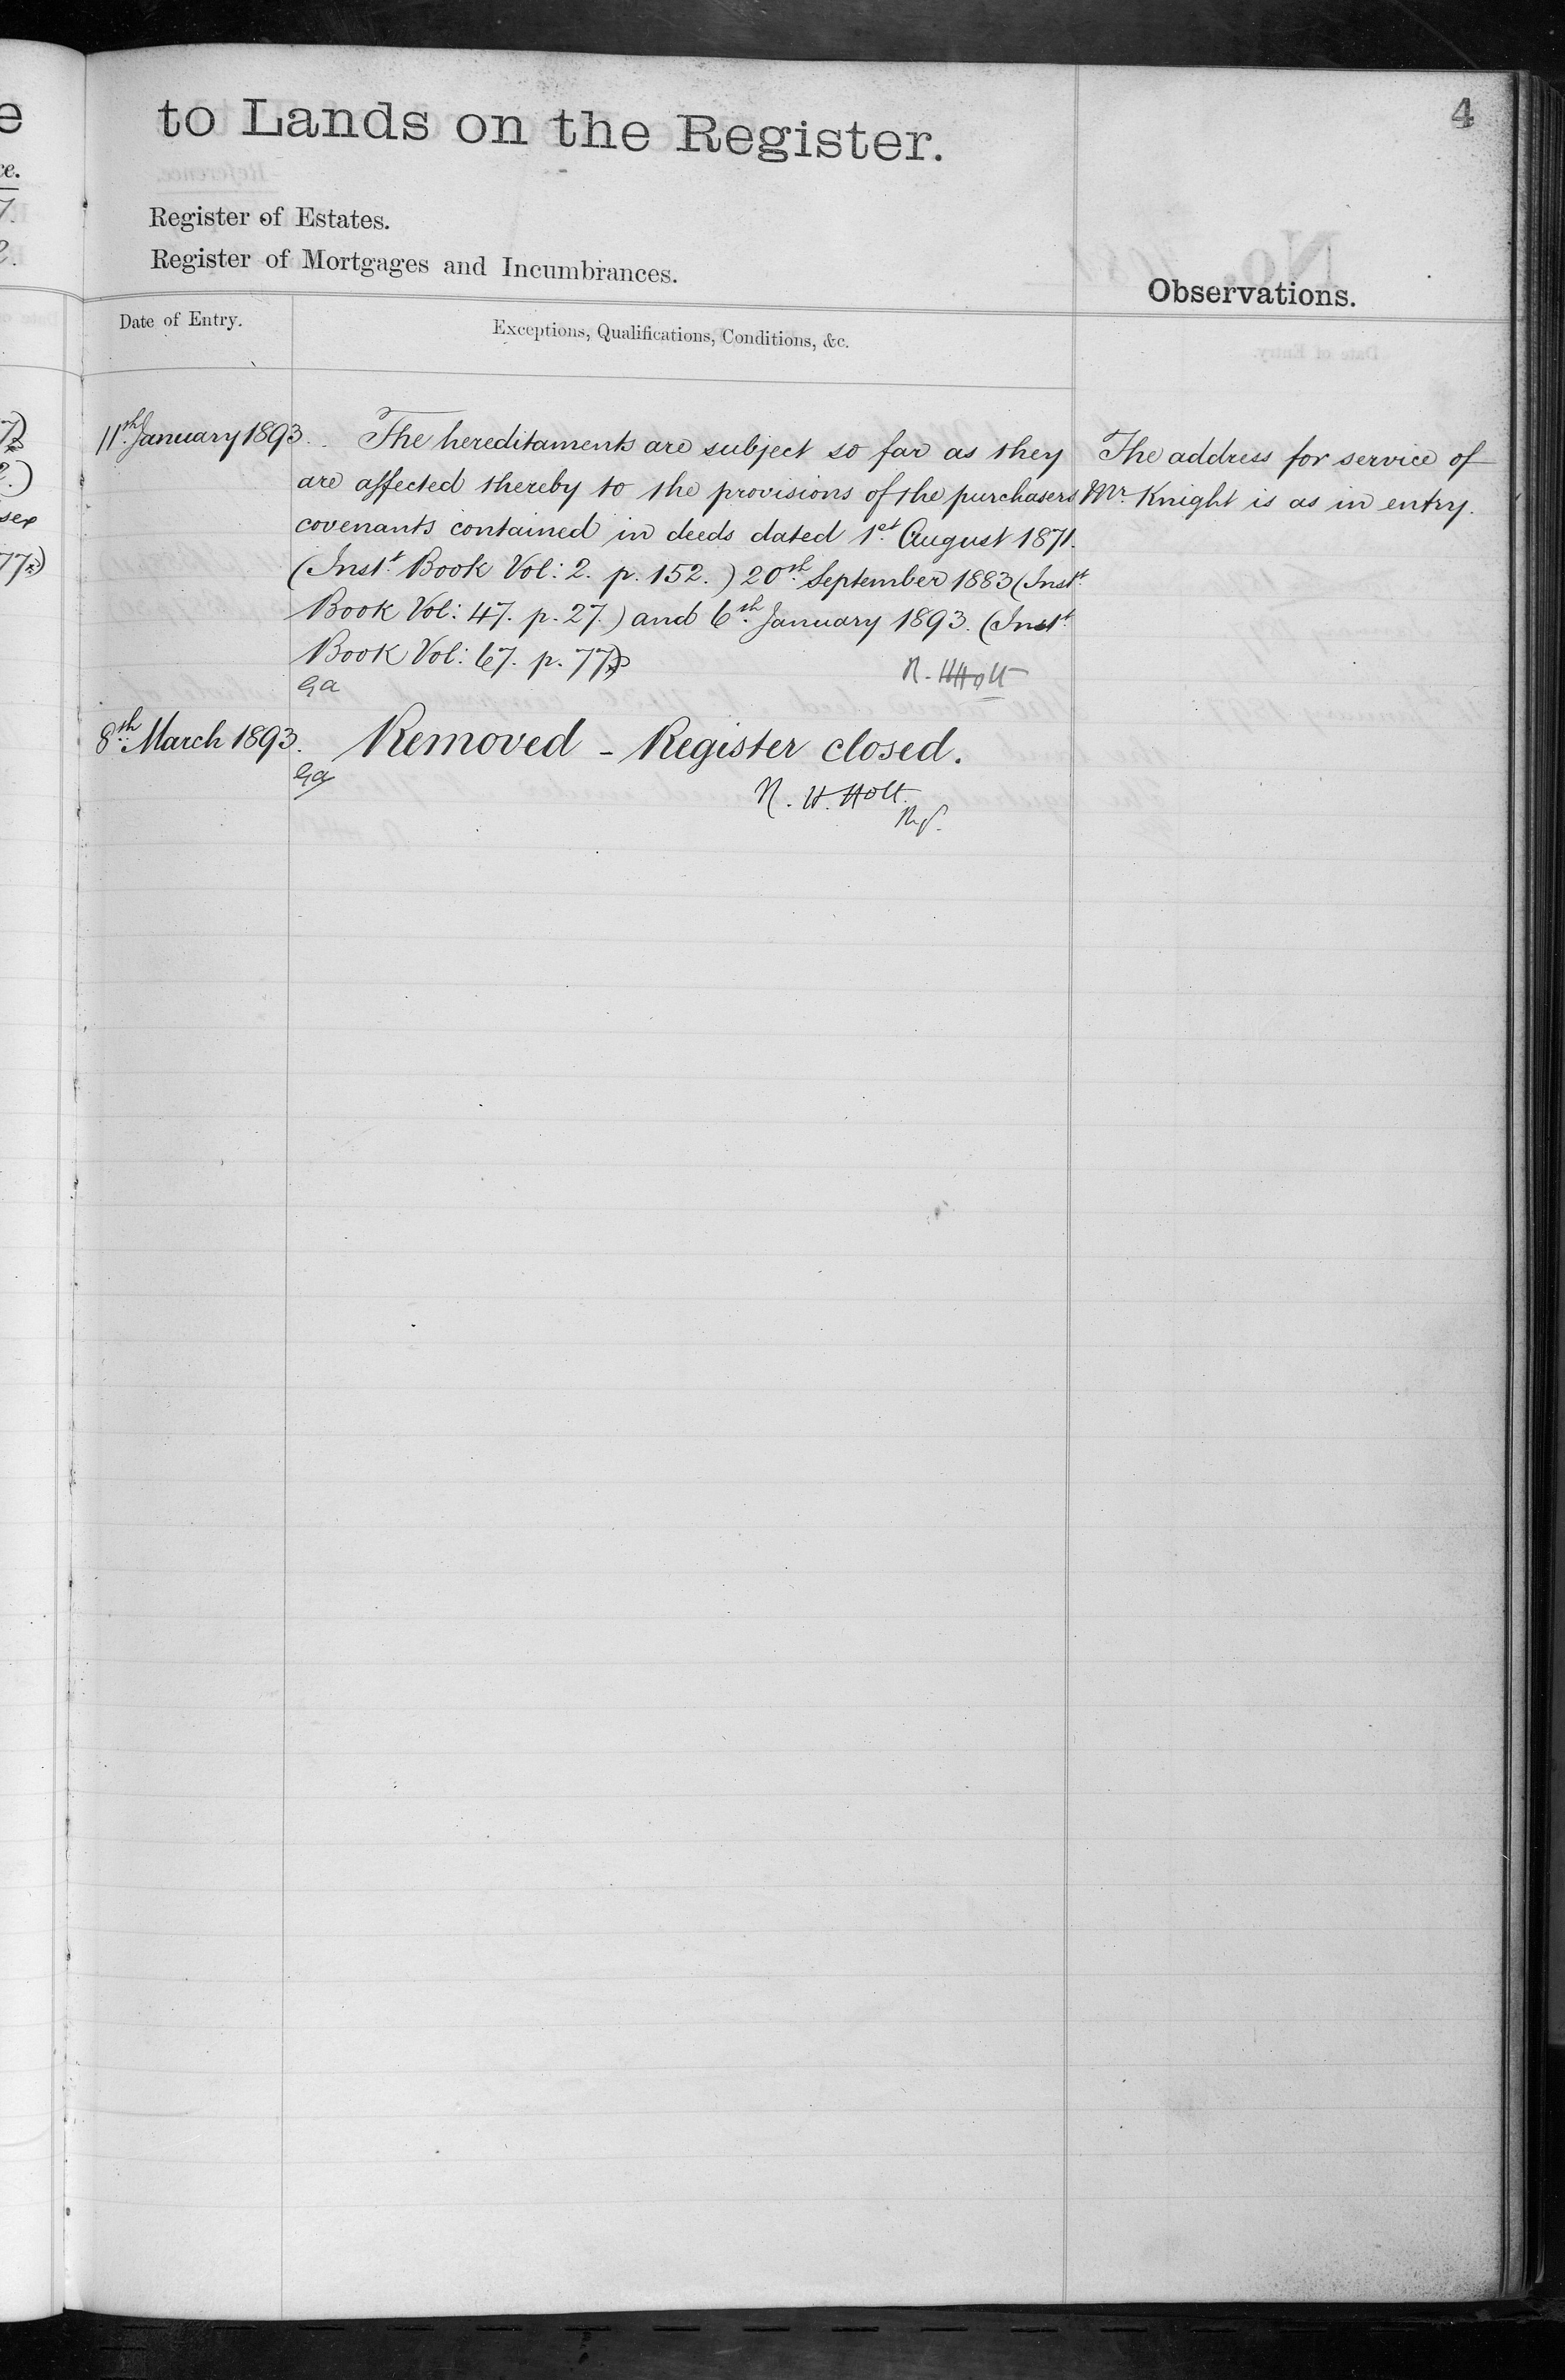 4
to Lands on the Register.
Register of Estates.
Register of Mortgages and Incumbrances.
Observations.
Date of Entry.
Exceptions, Qualifications, Conditions, &c.
11th January 1893. The hereditaments are subject so far as they
are affected thereby to the provisions of the purchasers
covenants contained in deeds dated 1st August 1871.
(Instt Book Vol: 2. p. 152.) 20th September 1883 (Instt
Book Vol: 47. p. 27.) and 6th January 1893. (Instt
Book Vol: 67. p. 77)
R. H Holt
The address for service of
Mr. Knight is as in entry.
8th March 1893. Removed - Register closed.
R. H. Holt.